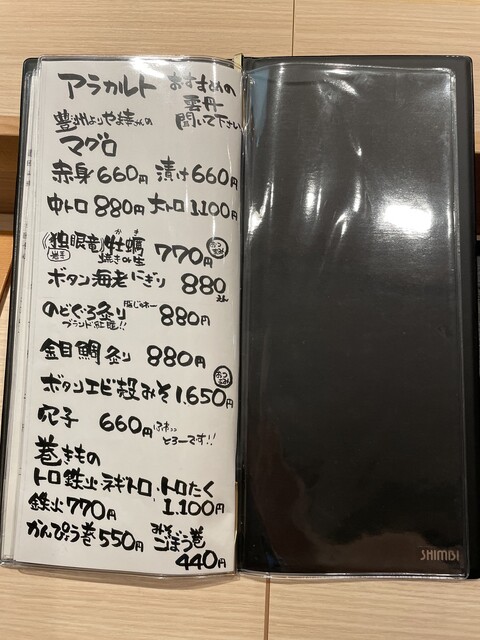 アラカルト おすすめの
雲丹
聞いて下さい
豊洲よりやま幸さんの
マグロ
赤身660円 漬け660円
中トロ880円 大トロ1,100円
独眼竜 牡蠣 770円 おつまみ
かき
岩手 焼きor生
ボタン海老にぎり 880えん
のどぐろ炙り 脂じゅわー 880円
ブランド紅瞳!!
金目鯛炙り 880円
おつまみ
ボタンエビ殻みそ1,650円
穴子 660円 ふわっっ
とろーです!!
巻きもの
トロ鉄火・ネギトロ・トロたく
鉄火770円 1,100円
かんぴょう巻550円 みそごぼう巻
440円
SHIMBI